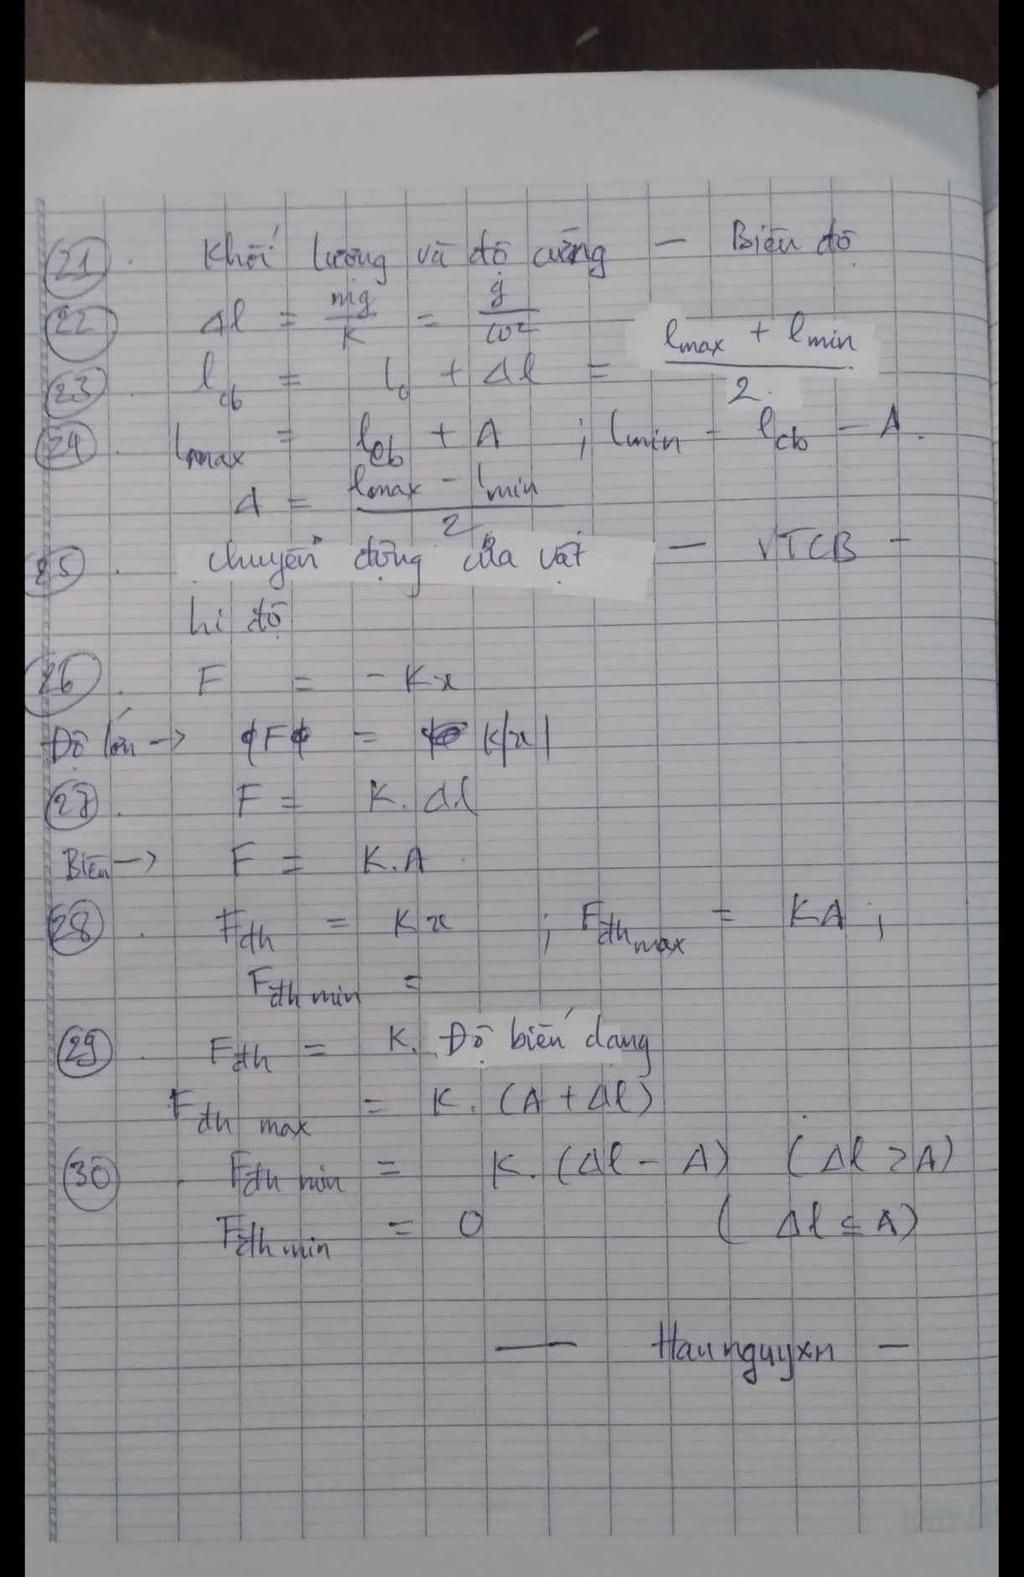 21. Khối lượng và độ cứng — Biên độ
22 Δl = mg/K = g/ω²
23 l_cb = l_0 + Δl = (l_max + l_min)/2.
24. l_max = l_cb + A ; l_min = l_cb - A.
A = (l_max - l_min)/2
25. chuyển động của vật — VTCB —
li độ
26. F = - Kx
Độ lớn → |F| = K|x|
27. F = K. Δl
Biên → F = K.A
28. F_đh = Kx ; F_đh max = KA ;
F_đh min =
29. F_đh = K. Độ biến dạng
F_đh max = K. (A + Δl)
30. F_đh min = K. (Δl - A) (Δl ≥ A)
F_đh min = 0 ( Δl ≤ A)
— Haunguyxn —